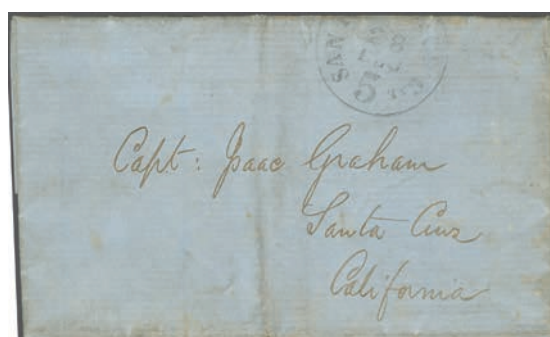 SAN
Capt: Isaac Graham
Santa Cruz
California